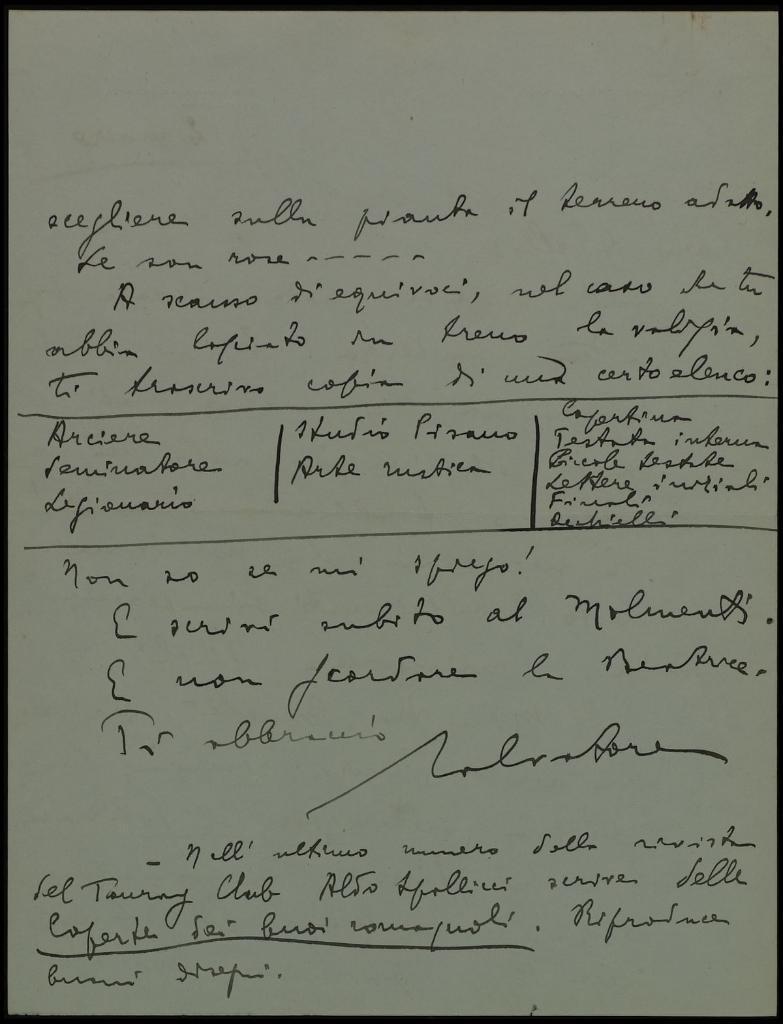 scegliere sulla pianta il terreno adatto.
Se son rose - - - - -
A scanso di equivoci, nel caso che tu
abbia lasciato in treno la valigia,
ti trascrivo copia di una certo elenco:
Arciere
Seminatore
Legionario
Studio Pisano
Arte rustica
Copertina
Testata interna
Piccole testate
Lettere iniziali
Finali
Occhielli
Non so se mi spiego!
E scrivi subito al Molmenti.
E non scordare la Beatrice.
Ti abbraccio
Salvatore
- Nell' ultimo numero della rivista
del Touring Club Aldo Spallicci scrive delle
Coperte dei buoi romagnoli. Riproduce
buoni disegni.